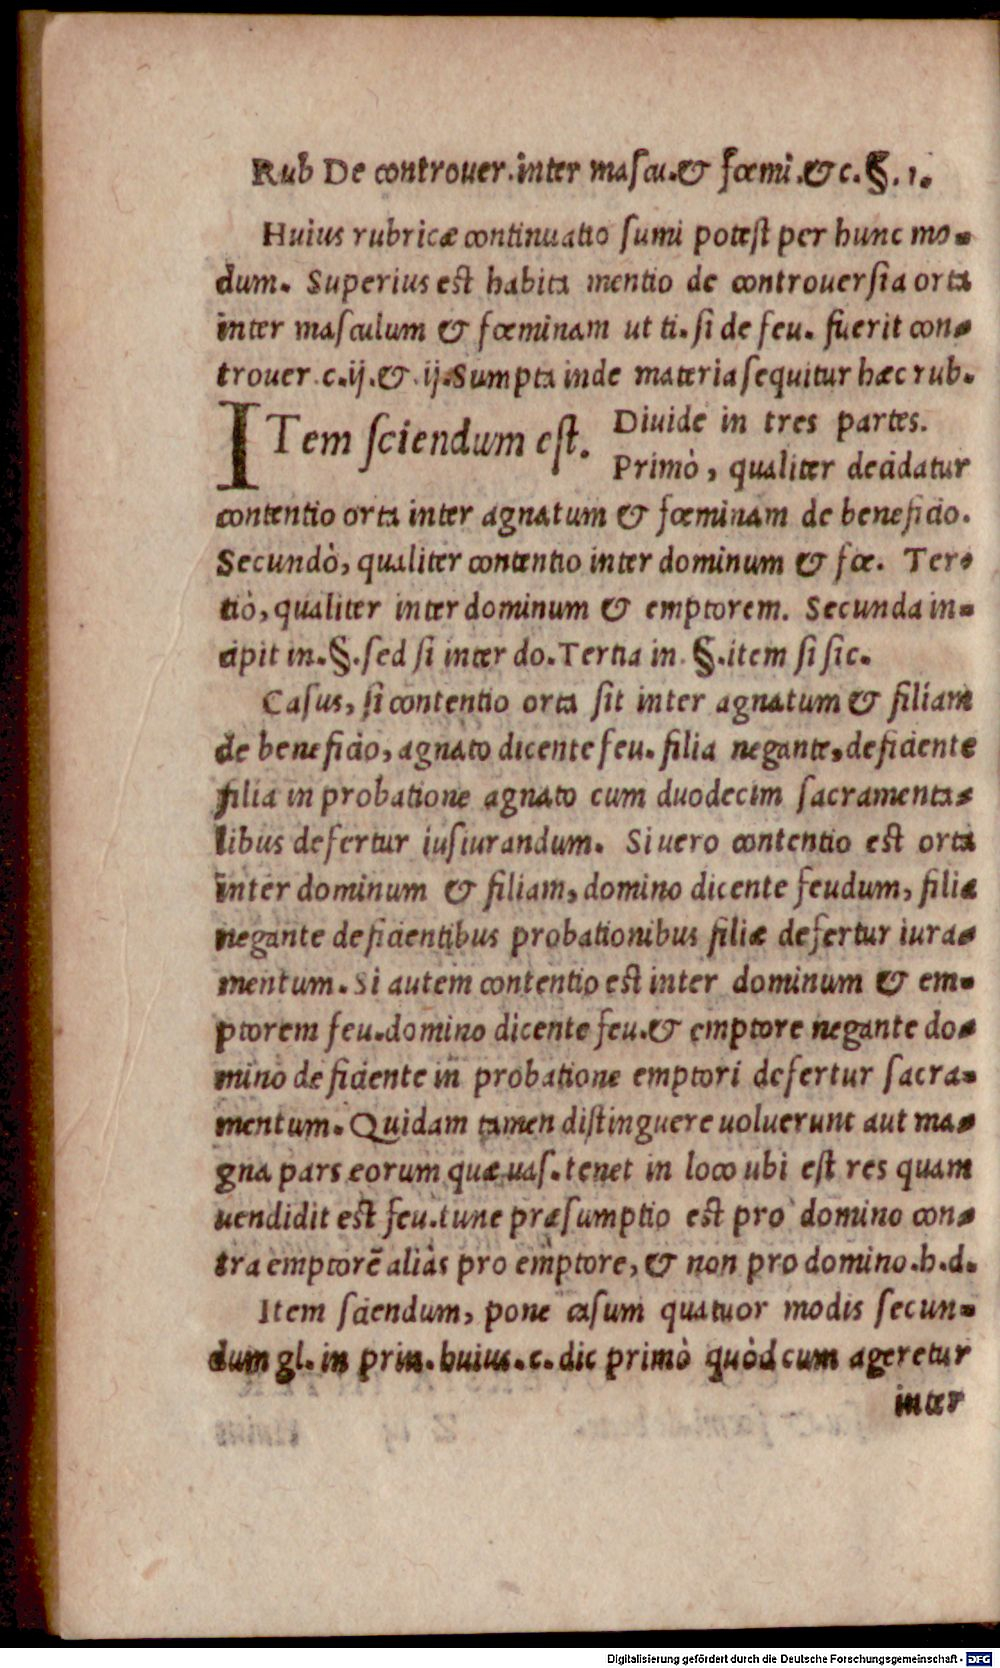 Rub De controuer.inter mascu.& fœmi.&c.§.1.
Huius rubricæ continuatio sumi potest per hunc mo-
dum. Superius est habita mentio de controuersia orta
inter masculum & fœminam ut ti. si de feu. fuerit con-
trouer.c.ij.&.ij.Sumpta inde materia sequitur hæc rub.
ITem sciendum est. Diuide in tres partes.
Primò, qualiter decidatur
contentio orta inter agnatum & fœminam de beneficio.
Secundò, qualiter contentio inter dominum & fœ. Ter-
tiò, qualiter inter dominum & emptorem. Secunda in-
cipit in.§.sed si inter do.Tertia in.§.item si sic.
Casus, si contentio orta sit inter agnatum & filiam
de beneficio, agnato dicente feu. filia negante, deficiente
filia in probatione agnato cum duodecim sacramenta-
libus defertur iusiurandum. Si uero contentio est orta
inter dominum & filiam, domino dicente feudum, filia
negante deficientibus probationibus filiæ defertur iura-
mentum. Si autem contentio est inter dominum & em-
ptorem feu.domino dicente feu.& emptore negante do-
mino deficiente in probatione emptori defertur sacra-
mentum. Quidam tamen distinguere uoluerunt aut ma-
gna pars eorum quæ uas.tenet in loco ubi est res quam
uendidit est feu.tunc præsumptio est pro domino con-
tra emptorẽ aliàs pro emptore, & non pro domino.h.d.
Item sciendum, pone casum quatuor modis secun-
dum gl. in prin. huius.c. dic primò quòd cum ageretur
inter
Digitalisierung gefördert durch die Deutsche Forschungsgemeinschaft - DFG